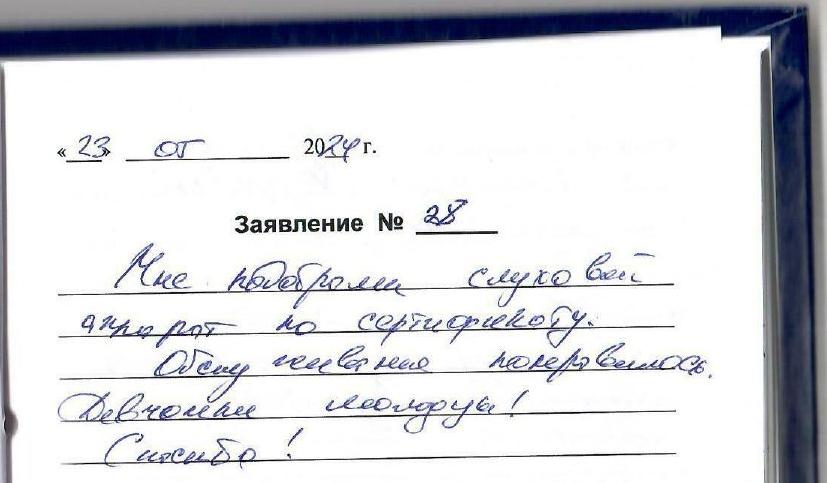 «23» 07 2024 г.
Заявление № 28
Мне подобрали слуховой
аппарат по сертификату.
Обслуживание понравилось.
Девчонки молодцы!
Спасибо!